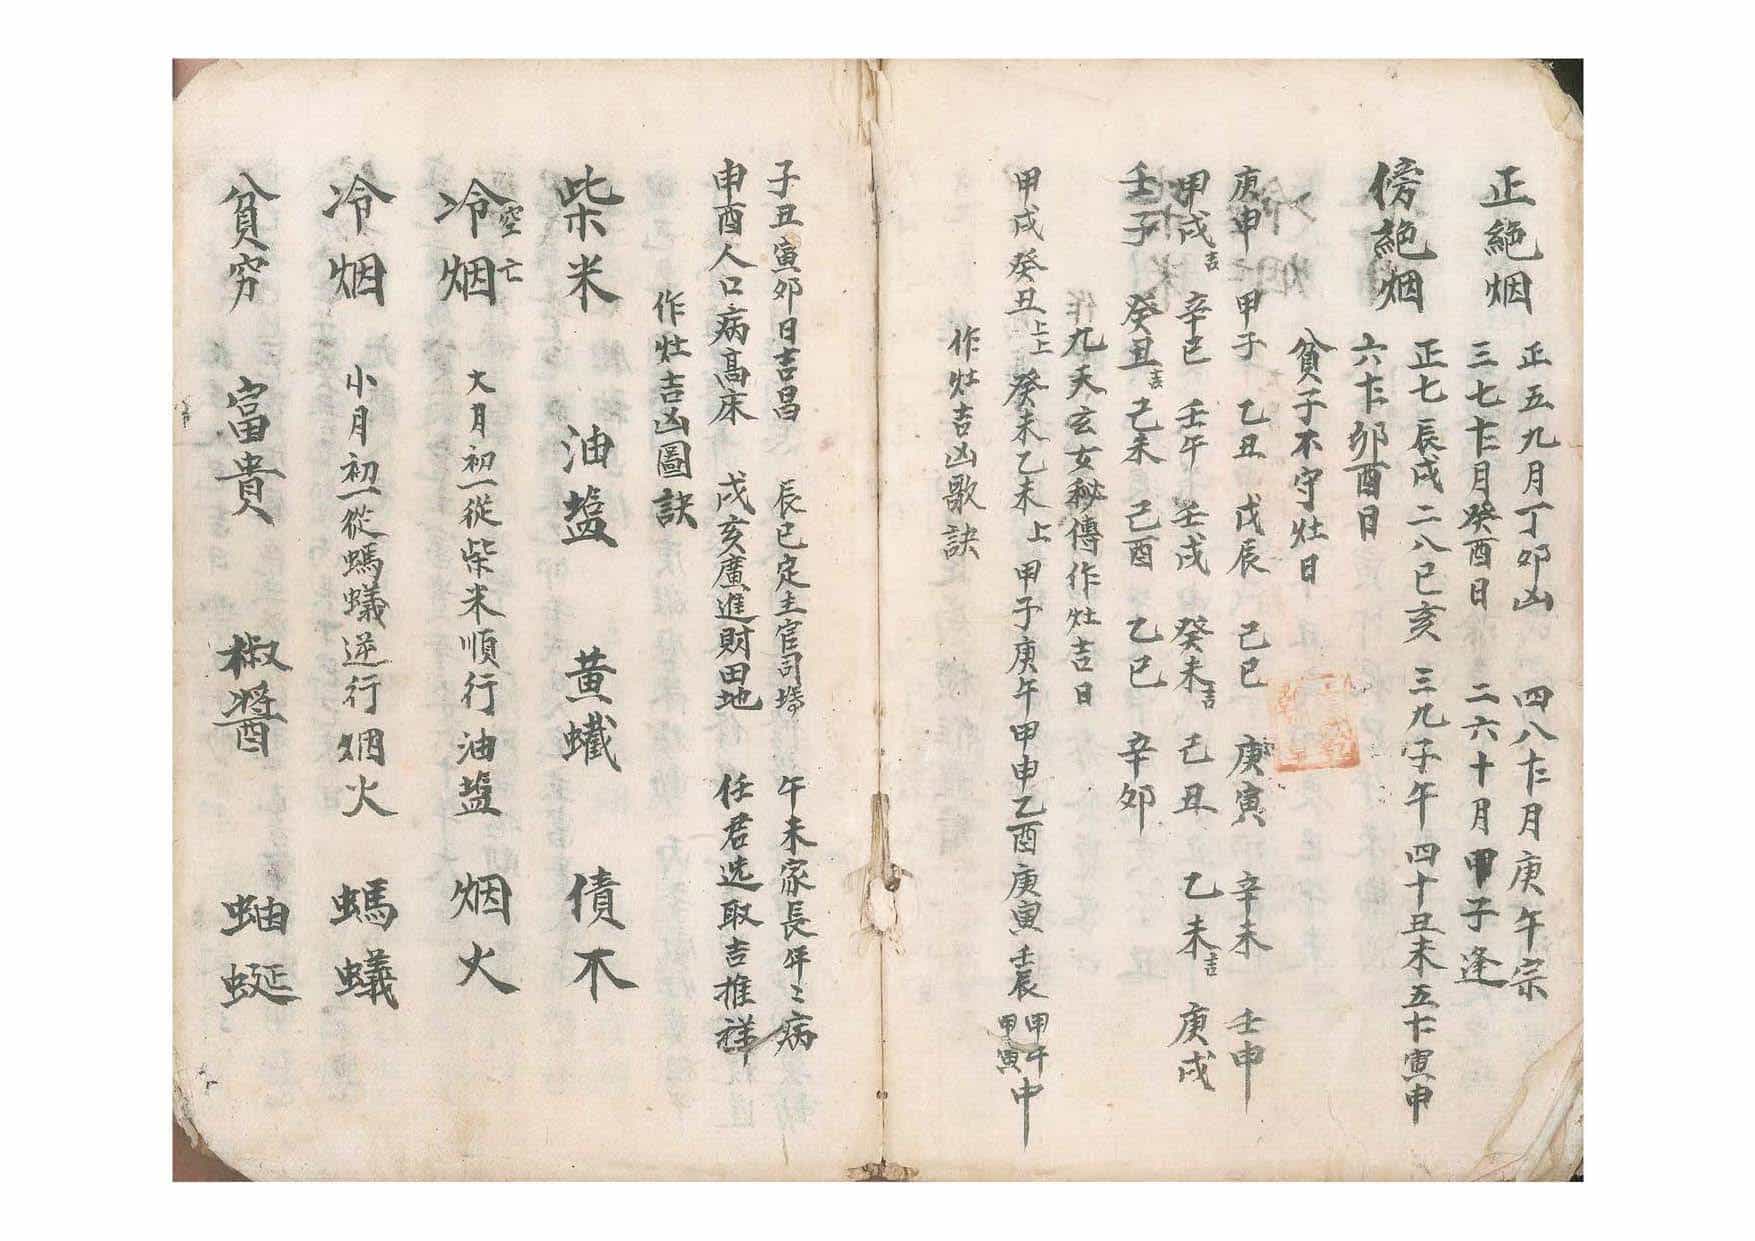 正絕烟
正五九月丁卯凶 四八𠦃月庚午宗
三七𠦃月癸酉日 二六十月甲子逢
傍絕烟
正七辰戌 二八巳亥 三九子午 四十丑未 五𠦃寅申
六𠦃卯酉日
貧子不守灶日
庚申 甲子 乙丑 戊辰 己巳 庚寅 辛未 壬申
甲戌吉 辛巳 壬午 壬戌 癸未吉 己丑 乙未吉 庚戌
壬子 癸丑吉 己未 己酉 乙巳 辛卯
九天玄女秘傳作灶吉日
甲戌癸丑上上 癸未乙未上 甲子庚午甲申乙酉庚寅壬辰甲午甲寅中
作灶吉凶歌訣
子丑寅卯日吉昌 辰巳定主官司 午未家長年〻病
申酉人口病高床 戌亥廣進財田地 任君选取吉推祥
作灶吉凶圖訣
柴米 油塩 黄蠘 債不
空亡
冷烟 大月初一從柴米順行油塩 烟火
冷烟 小月初一從螞蟻逆行烟火 螞蟻
貧穷 富貴 椒醬 蚰蜒